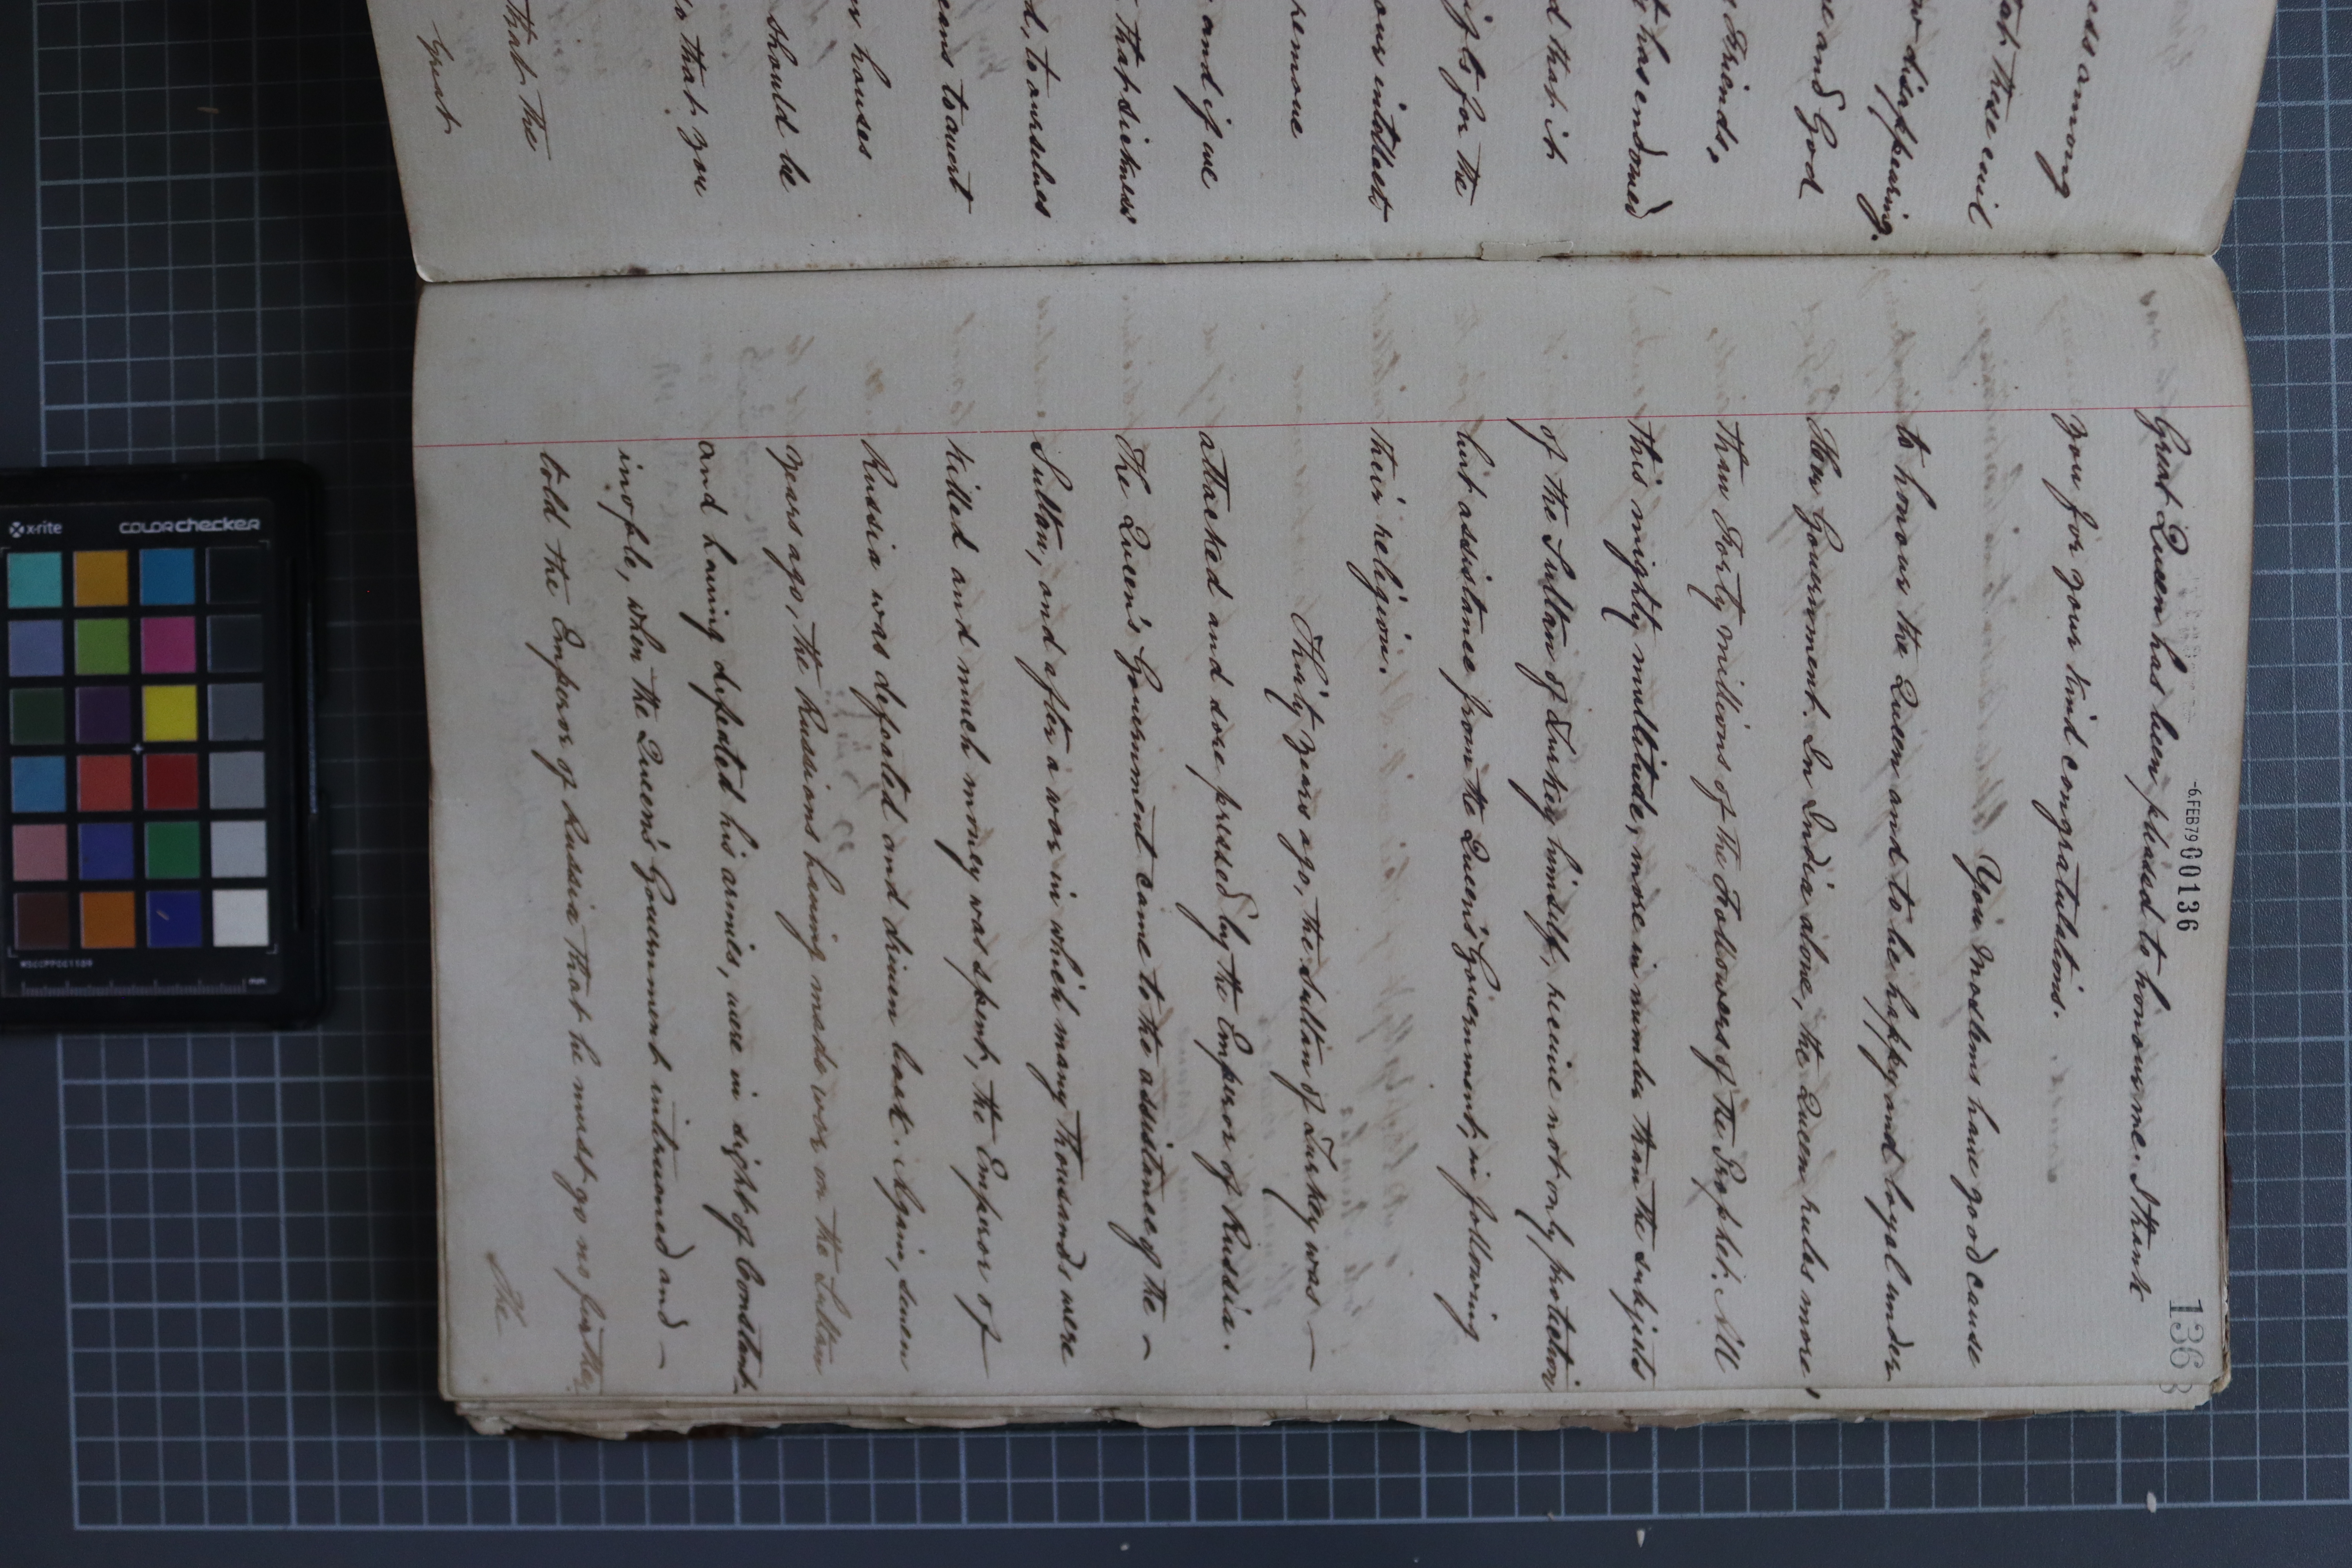 ess among
tat these evil
w disappearing.
re and God
Friends,
t has endowed
d that it
ights for the
our intellect
remove
and if we
that sickness
d, to ourselves
eans to avert
r houses
should be
o that you
that the
Great
-6.FEB79 00136
136
Great Queen has been pleased to honour me. I thank
you for your kind congratulations.
You Moslems have good cause
to honour the Queen and to be happy and loyal under
Her Government. In India alone, the Queen rules more
than Forty millions of the Followers of the Prophet. All
this mighty multitude, more in number than the subjects
of the Sultan of Turkey himself, receive not only protection
but assistance from the Queen's Government, in following
their religion.
Thirty years ago, the Sultan of Turkey was —
attacked and sore pressed by the Emperor of Russia.
The Queen's Government came to the assistance of the —
Sultan, and after a war in which many thousands were
killed and much money was spent, the Emperor of
Russia was defeated and driven back. Again, seven
years ago, the Russians having made war on the Sultan
and having defeated his armies, were in sight of Constant-
inople, when the Queen's Government intervened and —
told the Emperor of Russia that he must go no further.
The
x-rite
colorchecker
MSCCPPCC1109
mm